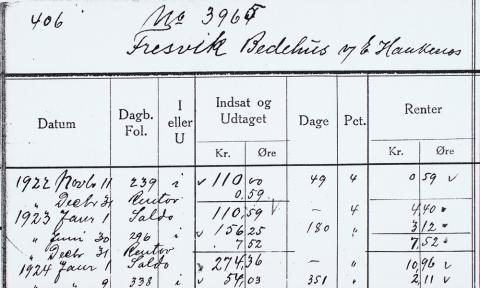 406 No 3965
Fresvik Bedehus v/ E Haukenes
Datum Dagb. Fol. I eller U Indsat og Udtaget Dage Pct. Renter
Kr. Øre Kr. Øre
1922 Novbr 11 239 i v 110 00 49 4 0 59 v
" Decbr 31 Rentor 0,59
1923 Janr 1 Saldo 110,59 v – 4 4,40
" Juni 30 296 i v 156 25 180 " 3,12
" Decbr 31 Rentor 7 52 7,52
1924 Janr 1 Saldo 274,36 – " 10,96 v
" " 9 338 i v 54,03 351 " 2,11 v